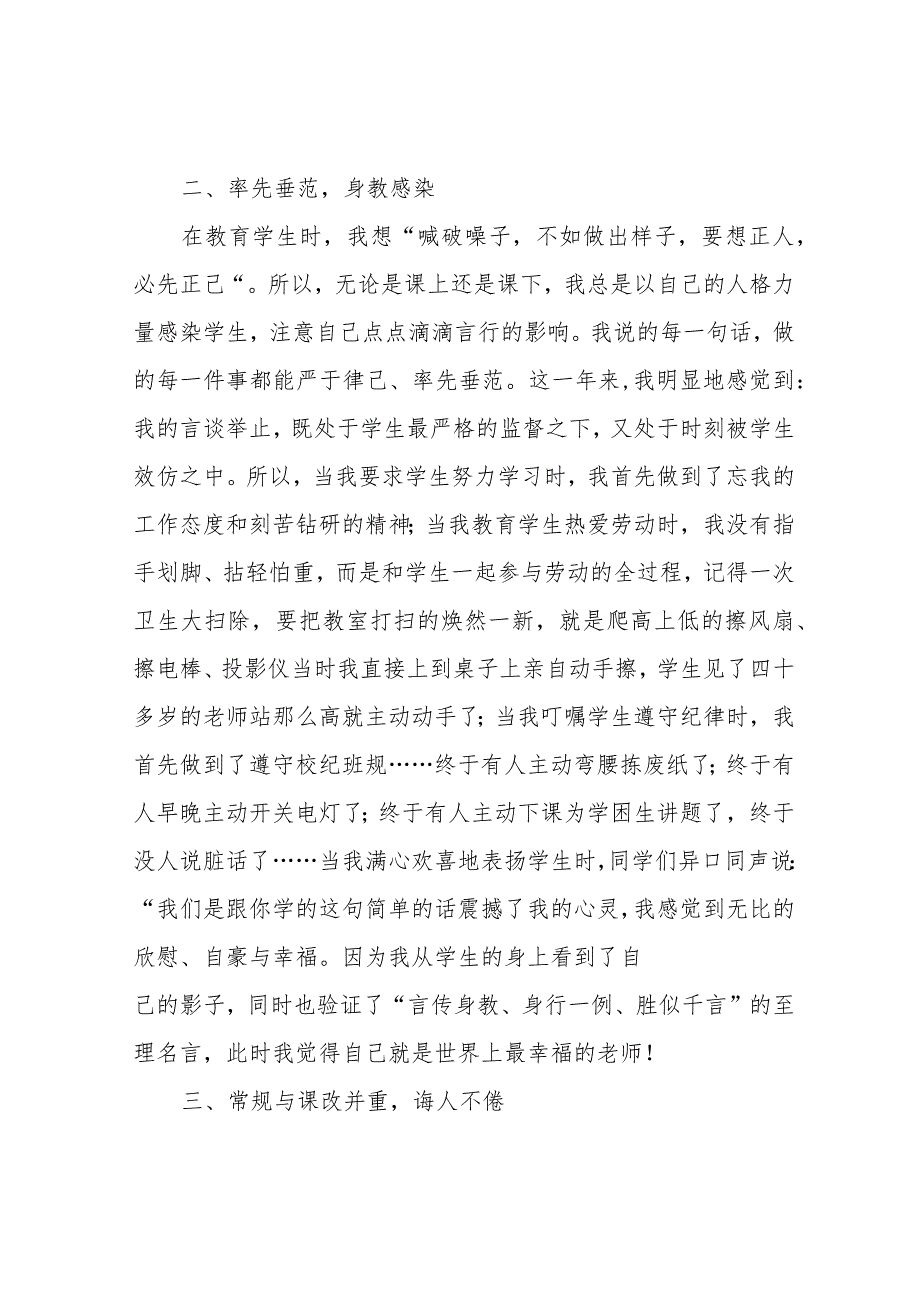 二、率先垂范，身教感染
在教育学生时，我想“喊破噪子，不如做出样子，要想正人，
必先正己“。所以，无论是课上还是课下，我总是以自己的人格力
量感染学生，注意自己点点滴滴言行的影响。我说的每一句话，做
的每一件事都能严于律己、率先垂范。这一年来，我明显地感觉到：
我的言谈举止，既处于学生最严格的监督之下，又处于时刻被学生
效仿之中。所以，当我要求学生努力学习时，我首先做到了忘我的
工作态度和刻苦钻研的精神；当我教育学生热爱劳动时，我没有指
手划脚、拈轻怕重，而是和学生一起参与劳动的全过程，记得一次
卫生大扫除，要把教室打扫的焕然一新，就是爬高上低的擦风扇、
擦电棒、投影仪当时我直接上到桌子上亲自动手擦，学生见了四十
多岁的老师站那么高就主动动手了；当我叮嘱学生遵守纪律时，我
首先做到了遵守校纪班规……终于有人主动弯腰拣废纸了；终于有
人早晚主动开关电灯了；终于有人主动下课为学困生讲题了，终于
没人说脏话了……当我满心欢喜地表扬学生时，同学们异口同声说：
“我们是跟你学的这句简单的话震撼了我的心灵，我感觉到无比的
欣慰、自豪与幸福。因为我从学生的身上看到了自
己的影子，同时也验证了“言传身教、身行一例、胜似千言”的至
理名言，此时我觉得自己就是世界上最幸福的老师！
三、常规与课改并重，诲人不倦